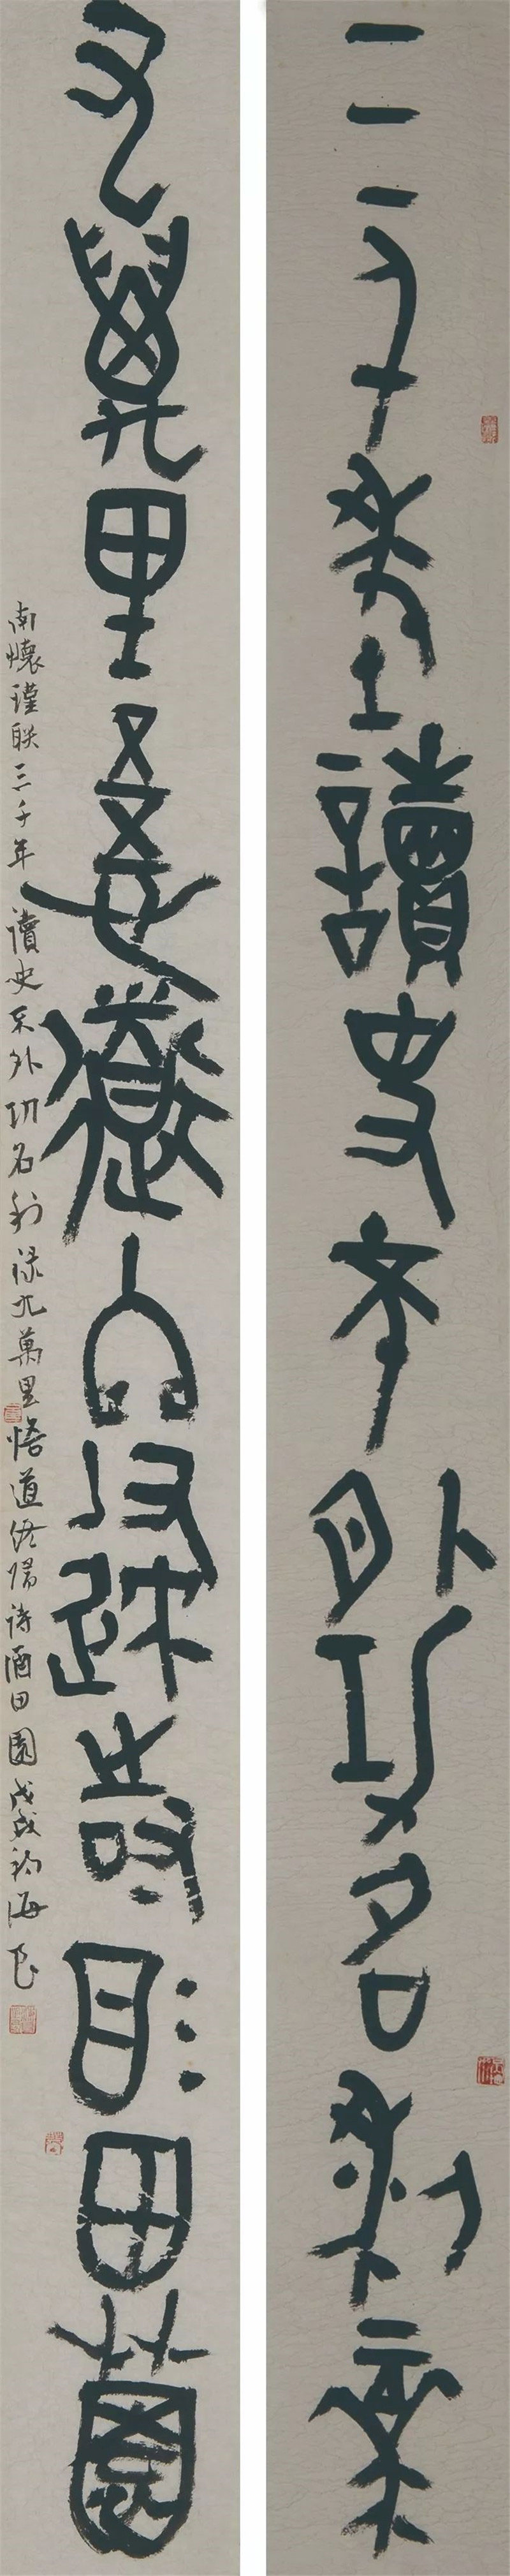 三千年讀史不外功名利祿
九萬里悟道終歸詩酒田園
南懷瑾联三千年讀史不外功名利禄九萬里悟道终歸诗酒田園戊戌海